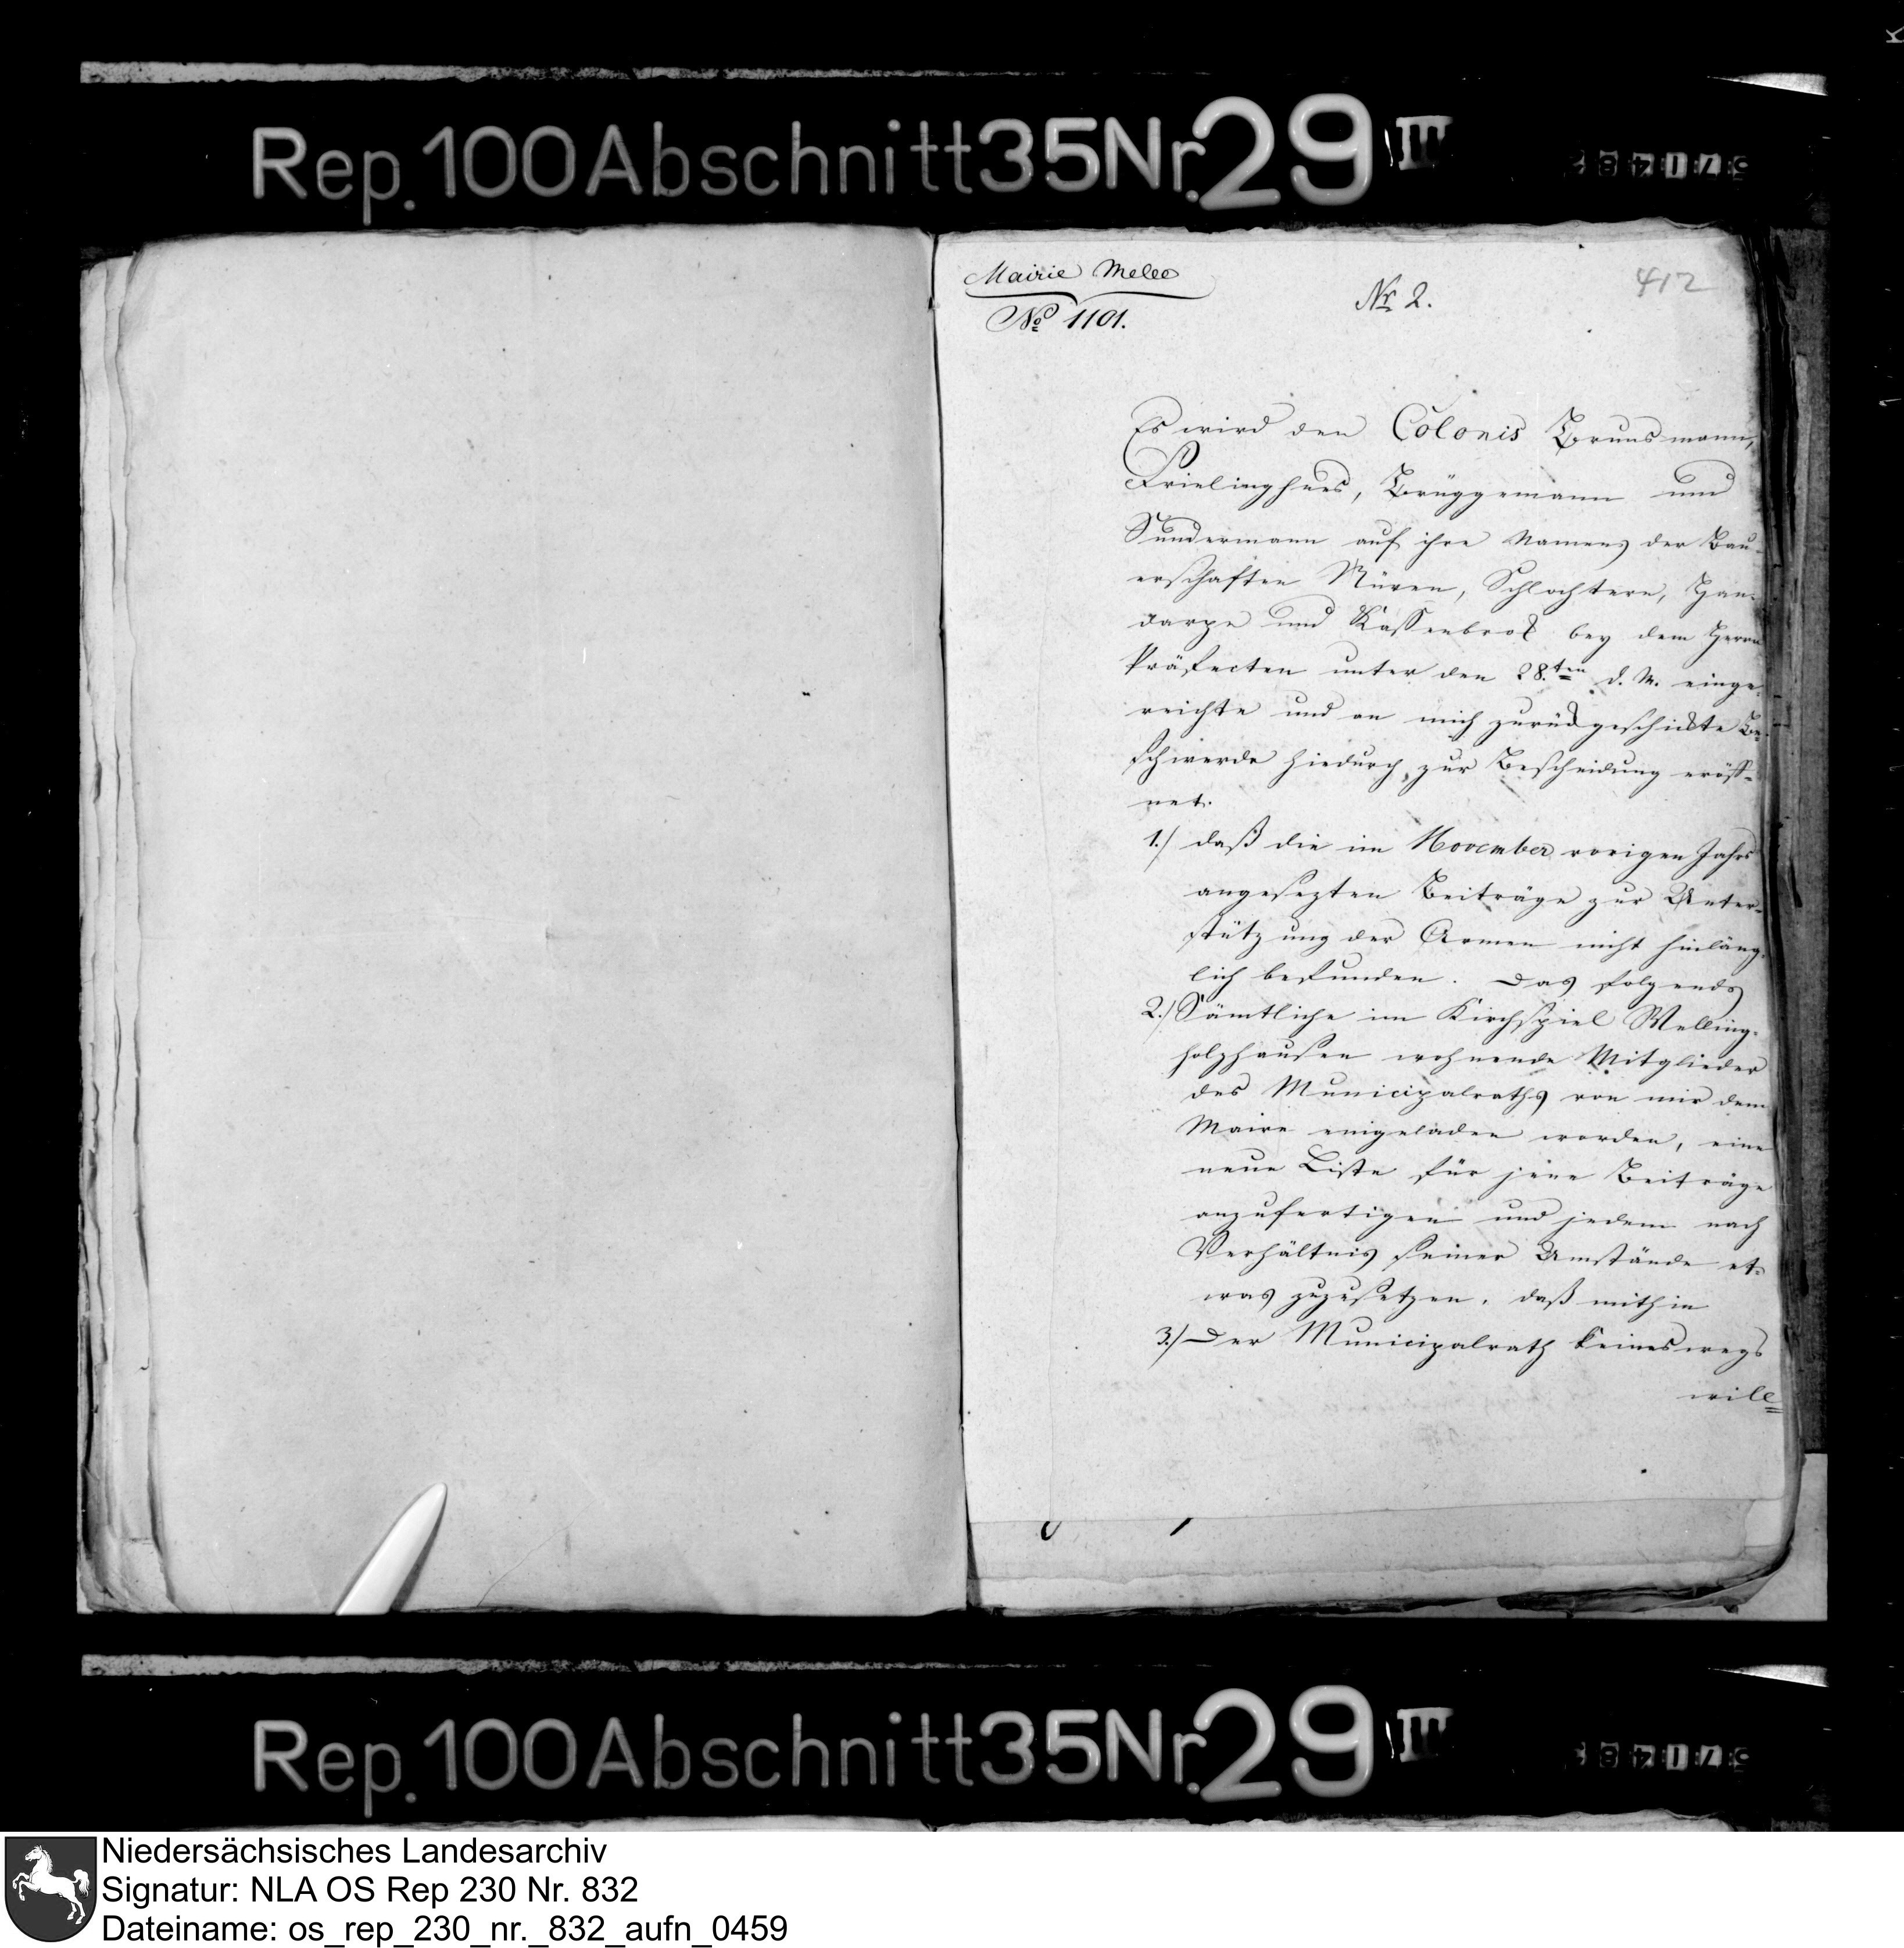 Rep. 100 Abschnitt 35 Nr. 29 III
Mairie Melle
No 1101.
Nr 2.
412
Es wird den Colonis Brunsmann,
Frielinghues, Brüggemann und
Sundermann auf ihre Namens der Bau-
erschaften Nüven, Schlochtern, Han-
darpe und Kassenbrock bey dem Herrn
Präfecten unter den 28.ten d. M. einge-
reichte und an mich zurückgeschickte Be-
schwerde hiedurch zur Bescheidung eröff-
net.
1./ daß die im November vorigen Jahrs
angesezten Beiträge zur Unter-
stützung der Armen nicht hinläng-
lich befunden. Das folgends
2./ Sämtliche im Kirchspiel Welling-
holzhausen wohnende Mitglieder
des Municipalraths von mir dem
Maire eingeladen worden, eine
neue Liste für jene Beiträge
anzufertigen und jedem nach
Verhältnis seiner Umstände et-
was zuzusetzen. daß mithin
3./ Der Municipalrath keineswegs
will
Rep. 100 Abschnitt 35 Nr. 29 III
Niedersächsisches Landesarchiv
Signatur: NLA OS Rep 230 Nr. 832
Dateiname: os_rep_230_nr._832_aufn_0459